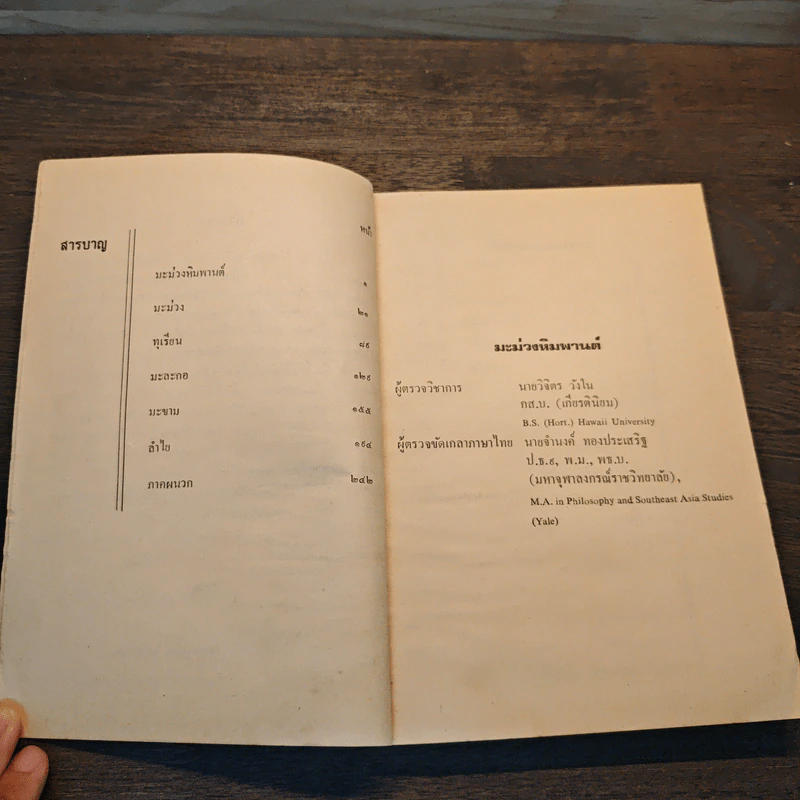 สารบาญ
หน้า
มะม่วงหิมพานต์ ๑
มะม่วง ๒๑
ทุเรียน ๘๙
มะละกอ ๑๒๙
มะขาม ๑๕๕
ลำไย ๑๙๔
ภาคผนวก ๒๔๒
มะม่วงหิมพานต์
ผู้ตรวจวิชาการ นายวิจิตร วังใน
กส.บ. (เกียรตินิยม)
B.S. (Hort.) Hawaii University
ผู้ตรวจขัดเกลาภาษาไทย นายจำนงค์ ทองประเสริฐ
ป.ธ.๙, พ.ม., พธ.บ.
(มหาจุฬาลงกรณ์ราชวิทยาลัย),
M.A. in Philosophy and Southeast Asia Studies
(Yale)